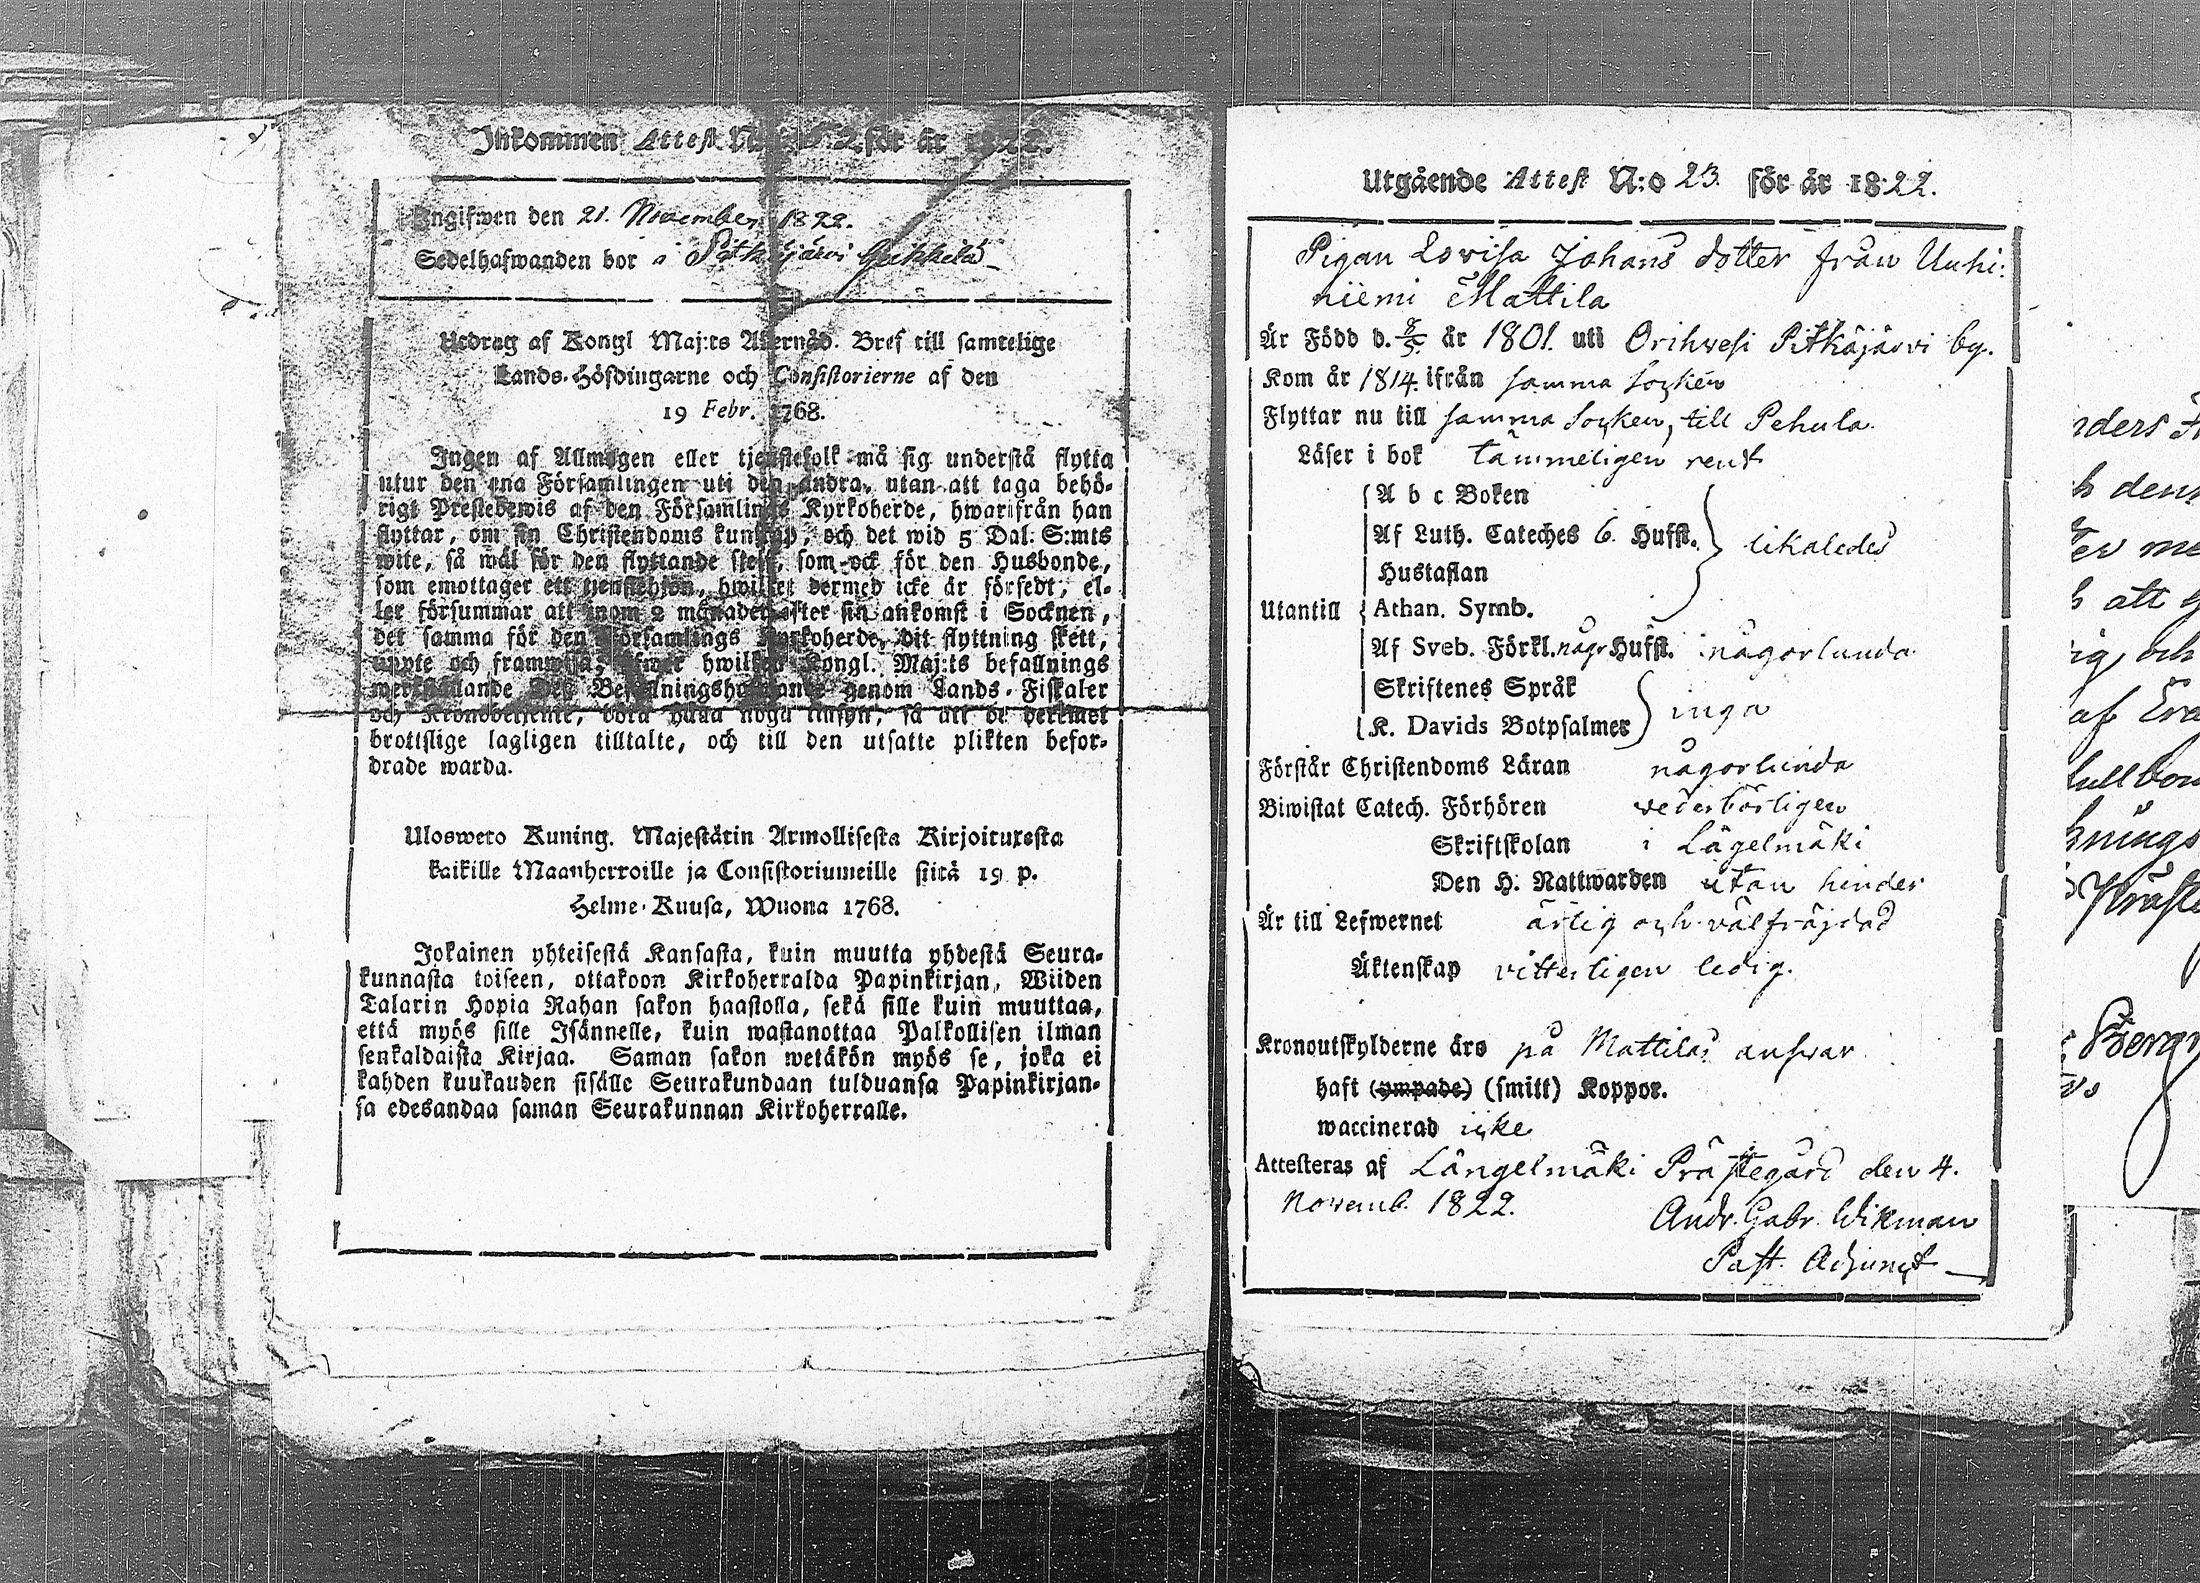 Inkommen Attest för år
Angifwen den 21. November 1822.
Sedelhafwanden bor i Pitkäjärvi
Utdrag af Kongl Maj:ts Bref till samtelige
Lands-Höfdingarne och Consistorierne af den
19 Febr. 1768.
Ingen af Allmogen eller tjenstefolk må sig understå flytta
utur den ena Församlingen uti den andra, utan att taga behö-
rigt Prestebewis af den Församlings Kyrkoherde, hwarifrån han
flyttar, om sin Christendoms kunskap, och det wid 5 Dal: S:mts
wite, så wäl för den flyttande sjelf, som ock för den Husbonde,
som emottager ett tjenstehjon, hwilket dermed icke är försedt, el-
ler försummar att inom 2 månader efter sin ankomst i Socknen,
det samma för den Församlings Kyrkoherde, dit flyttning skett,
uppte och framwisa; öfwer hwilken Kongl. Maj:ts befallnings
werkställande Des Befallningshafwande genom Lands-Fiskaler
och Kronobetjente, böra hålla noga insyn, så att de deremot
brottslige lagligen tilltalte, och till den utsatte plikten befor-
drade warda.
Ulosweto Kuning. Majestätin Armollisesta Kirjoituxesta
kaikille Maanherroille ja Consistoriumeille siitä 19 p.
Helme-Kuusa, Wuona 1768.
Jokainen yhteisestä Kansasta, kuin muutta yhdestä Seura-
kunnasta toiseen, ottakoon Kirkoherralda Papinkirjan, Wiiden
Talarin Hopia Rahan sakon haastolla, sekä sille kuin muuttaa,
että myös sille Isännelle, kuin wastanottaa Palkollisen ilman
senkaldaista Kirjaa. Saman sakon wetäkön myös se, joka ei
kahden kuukauden sisälle Seurakundaan tulduansa Papinkirjan-
sa edesandaa saman Seurakunnan Kirkoherralle.
Utgående Attest N:o 23. för år 1822.
Pigan Lovisa Johans dotter från Uuhi-
niemi Mattila
Är Född d. 8/5 år 1801. uti Orihvesi Pitkäjärvi by.
Kom år 1814. ifrån samma Socken
Flyttar nu till samma Socken, till Pehula.
Läser i bok tämmeligen rent
A b c Boken
Af Luth. Cateches 6. Hufst. likaledes
Hustaflan
Utantill Athan. Symb.
Af Sveb. Förkl. någr Hufst. någorlunda
Skriftenes Språk
K. Davids Botpsalmer inga
Förstår Christendoms Läran någorlunda
Biwistat Catech. Förhören vederbörligen
Skriftskolan i Lägelmäki
Den H. Nattwarden utan hinder
Är till Lefwernet ärlig och välfräjdad
Äktenskap vitterligen ledig.
Kronoutskylderne äro på Mattilas answar
haft (ympade) (smitt) Koppor.
waccinerad icke
Attesteras af Längelmäki Prästegård den 4.
Novemb. 1822.
Andr. Gabr. Wikman
Past. Adjunct